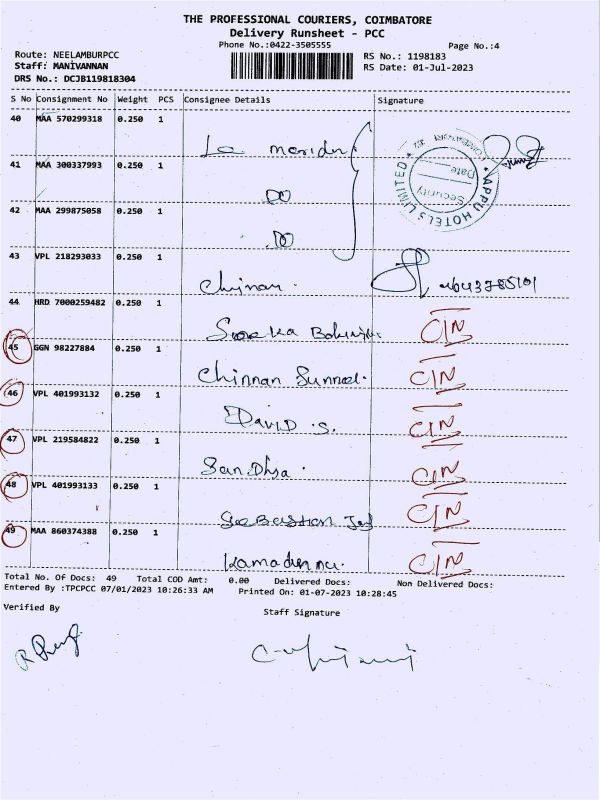 THE PROFESSIONAL COURIERS, COIMBATORE
Delivery Runsheet - PCC
Phone No.:0422-3505555 Page No.:4
Route: NEELAMBURPCC RS No.: 1198183
Staff: MANIVANNAN RS Date: 01-Jul-2023
DRS No.: DCJB119818304
S No Consignment No Weight PCS Consignee Details Signature
40 MAA 570299318 0.250 1
La
41 MAA 300337993 0.250 1
DO
42 MAA 299875058 0.250 1
DO
APPU HOTELS LIMITED
Security
Date
43 VPL 218293033 0.250 1
44 HRD 7000259482 0.250 1
C/N
45 GGN 98227884 0.250 1
Chinnan C/N
46 VPL 401993132 0.250 1
DAVID .S. C/N
47 VPL 219584822 0.250 1
Sandhya. C/N
48 VPL 401993133 0.250 1
C/N
49 MAA 860374388 0.250 1
C/N
Total No. Of Docs: 49 Total COD Amt: 0.00 Delivered Docs: Non Delivered Docs:
Entered By :TPCPCC 07/01/2023 10:26:33 AM Printed On: 01-07-2023 10:28:45
Verified By Staff Signature